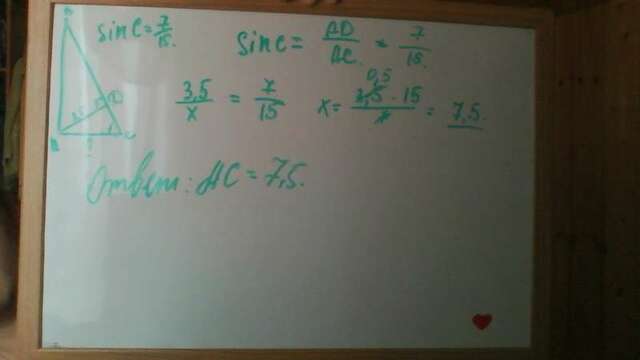 sin C = 7/15.
sin C = AD/AC = 7/15.
3,5
3,5/x = 7/15
x = 3,5 · 15/7 = 7,5.
0,5
Ответ: AC = 7,5.